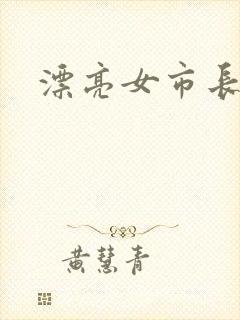 漂亮女市長
黄慧青